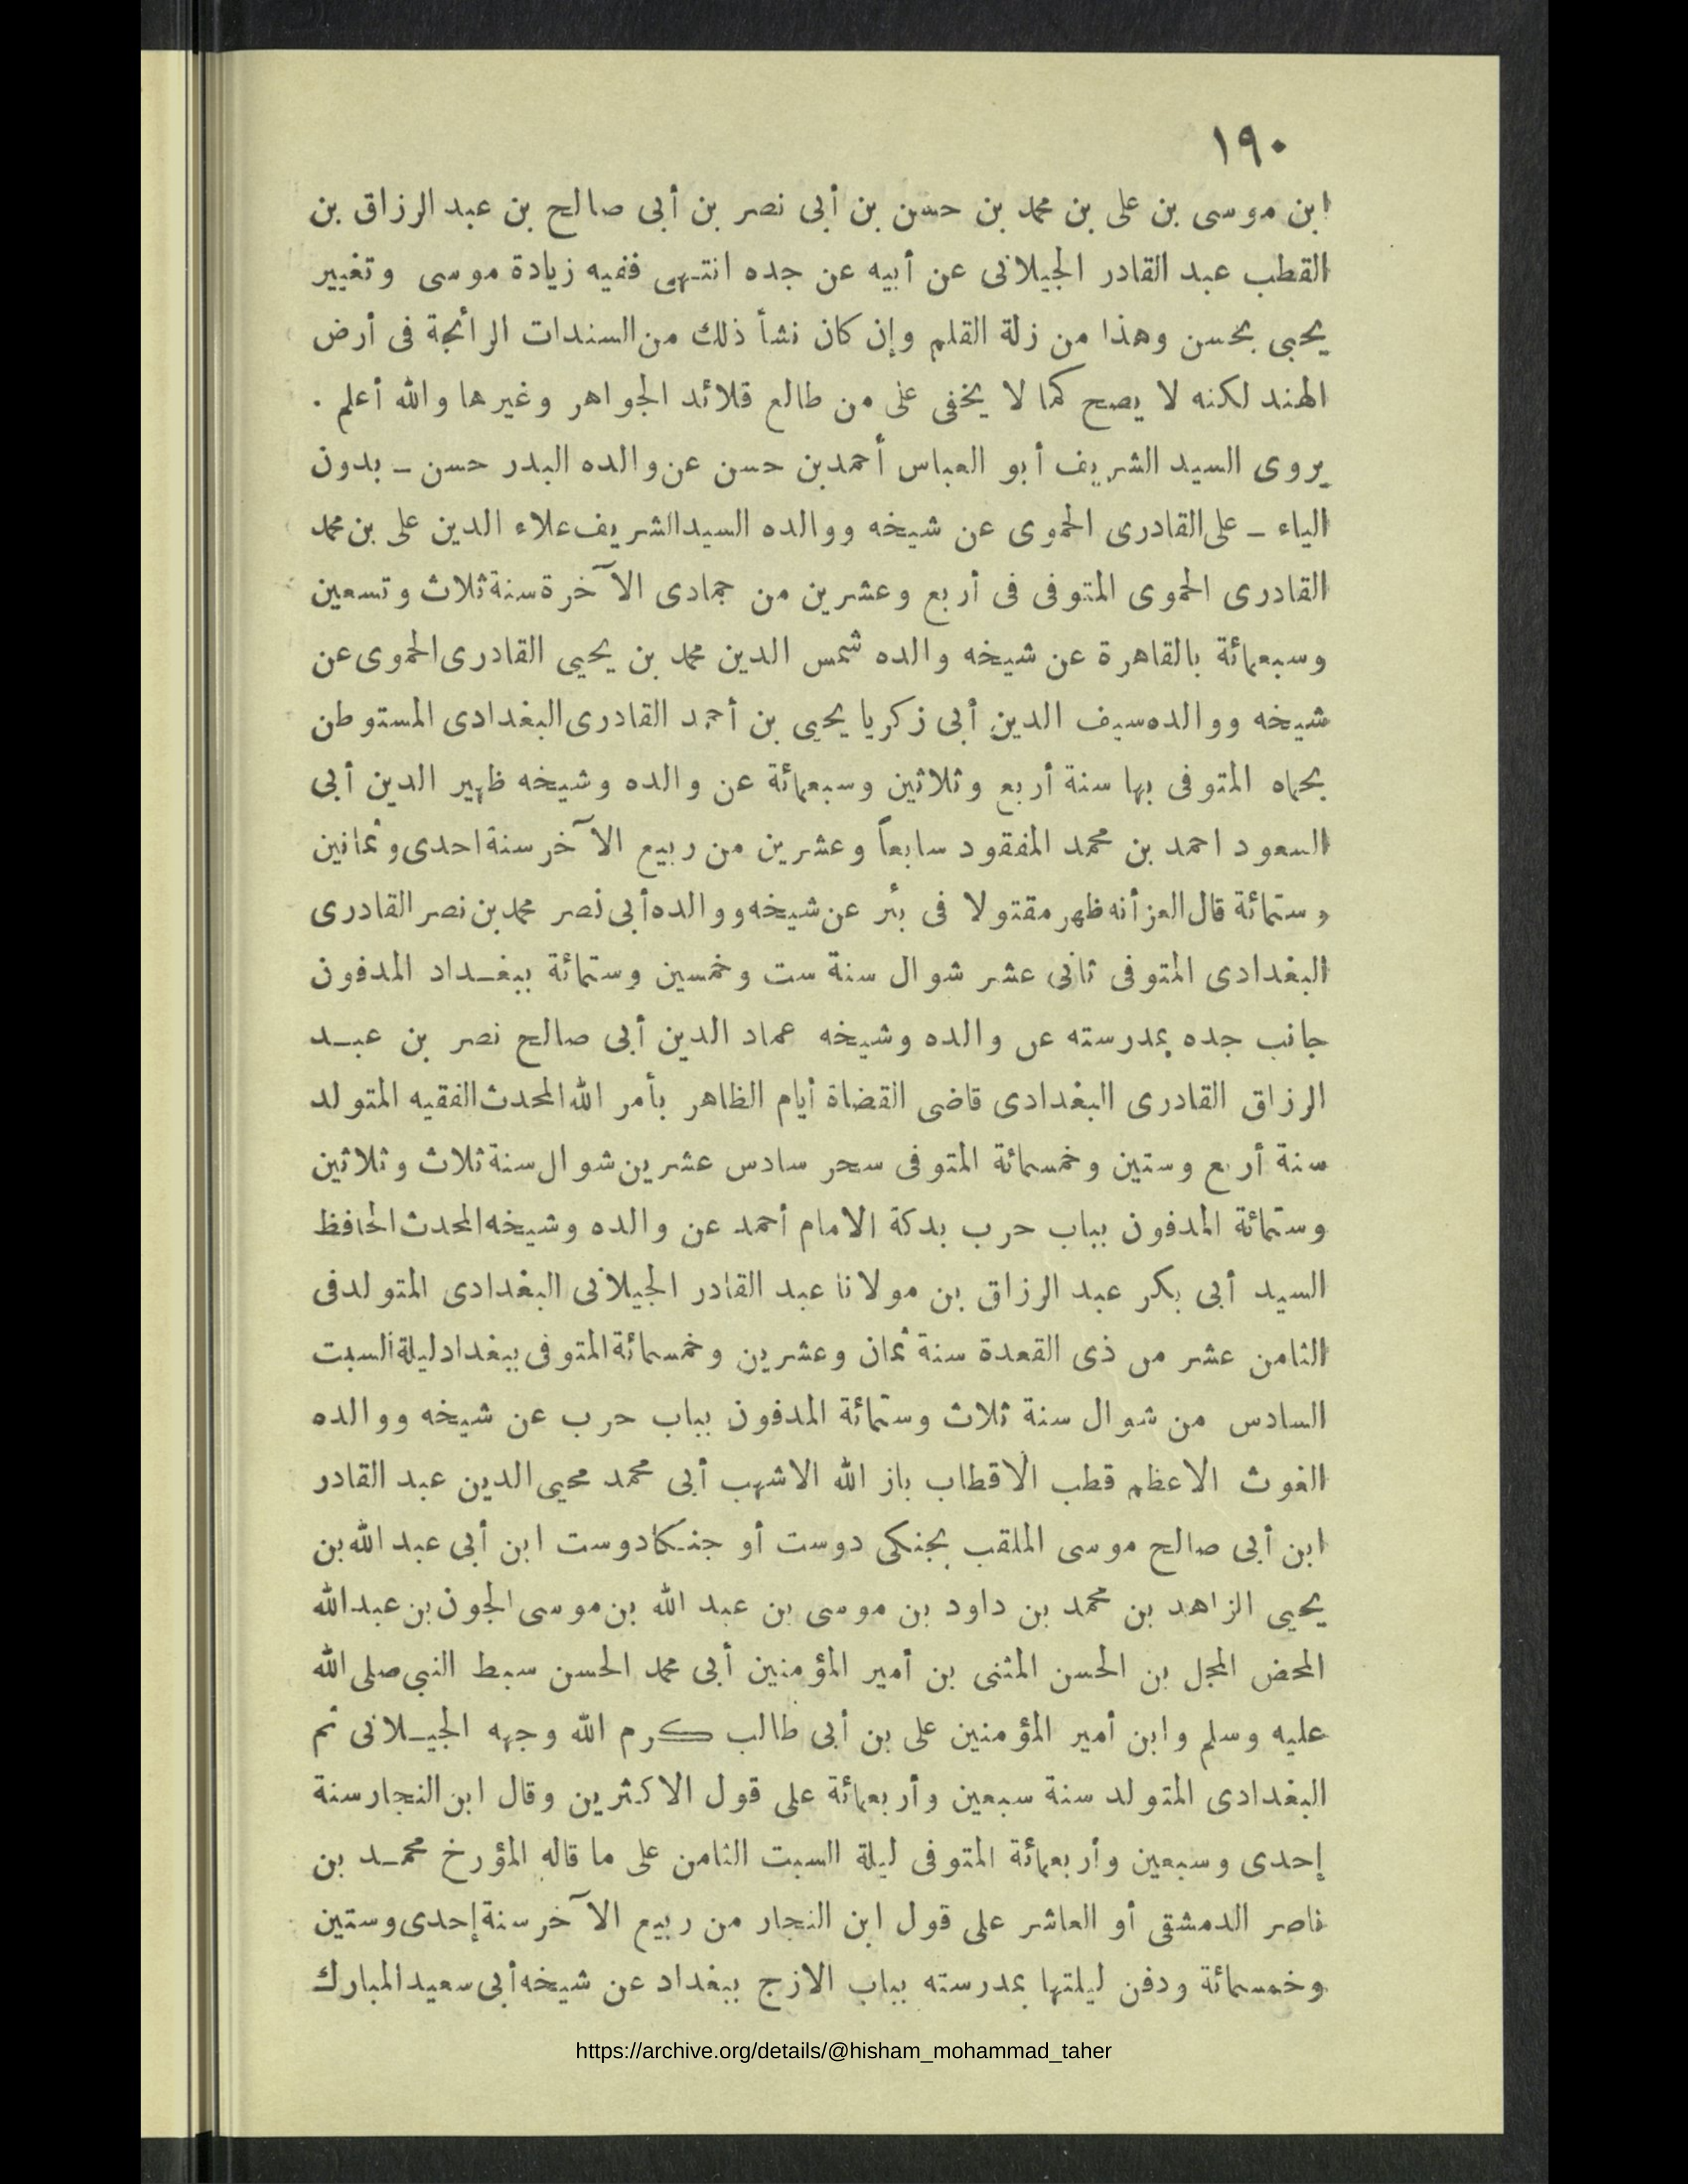 ١٩٠
ابن موسى بن على بن محمد بن حسن بن أبى نصر بن أبى صالح بن عبد الرزاق بن
القطب عبد القادر الجيلانى عن أبيه عن جده انتهى ففيه زيادة موسى وتغيير
يحيى بحسن وهذا من زلة القلم وإن كان نشأ ذلك من السندات الرائجة فى أرض
الهند لكنه لا يصح كما لا يخفى على من طالع قلائد الجواهر وغيرها والله أعلم .
يروى السيد الشريف أبو العباس أحمد بن حسن عن والده البدر حسن ــ بدون
الياء ــ على القادرى الحموى عن شيخه ووالده السيد الشريف علاء الدين على بن محمد
القادرى الحموى المتوفى فى أربع وعشرين من جمادى الآخرة سنة ثلاث وتسعين
وسبعمائة بالقاهرة عن شيخه والده شمس الدين محمد بن يحيى القادرى الحموى عن
شيخه ووالده سيف الدين أبى زكريا يحيى بن أحمد القادرى البغدادى المستوطن
بحماه المتوفى بها سنة أربع وثلاثين وسبعمائة عن والده وشيخه ظهير الدين أبى
السعود احمد بن محمد المفقود سابعاً وعشرين من ربيع الآخر سنة احدى وثمانين
وستمائة قال العز أنه ظهر مقتولا فى بئر عن شيخه ووالده أبى نصر محمد بن نصر القادرى
البغدادى المتوفى ثانى عشر شوال سنة ست وخمسين وستمائة ببغـداد المدفون
جانب جده بمدرسته عن والده وشيخه عماد الدين أبى صالح نصر بن عبـد
الرزاق القادرى البغدادى قاضى القضاة أيام الظاهر بأمر الله المحدث الفقيه المتولد
سنة أربع وستين وخمسمائة المتوفى سحر سادس عشرين شوال سنة ثلاث وثلاثين
وستمائة المدفون بباب حرب بدكة الامام أحمد عن والده وشيخه المحدث الحافظ
السيد أبى بكر عبد الرزاق بن مولانا عبد القادر الجيلانى البغدادى المتولد فى
الثامن عشر من ذى القعدة سنة ثمان وعشرين وخمسمائة المتوفى ببغداد ليلة السبت
السادس من شوال سنة ثلاث وستمائة المدفون بباب حرب عن شيخه ووالده
الغوث الاعظم قطب الاقطاب باز الله الاشهب أبى محمد محيى الدين عبد القادر
ابن أبى صالح موسى الملقب بجنكى دوست أو جنـكادوست ابن أبى عبد الله بن
يحيى الزاهد بن محمد بن داود بن موسى بن عبد الله بن موسى الجون بن عبد الله
المحض المجل بن الحسن المثنى بن أمير المؤمنين أبى محمد الحسن سبط النبى صلى الله
عليه وسلم وابن أمير المؤمنين على بن أبى طالب كرم الله وجهه الجيـلانى ثم
البغدادى المتولد سنة سبعين وأربعمائة على قول الاكثرين وقال ابن النجار سنة
إحدى وسبعين وأربعمائة المتوفى ليلة السبت الثامن على ما قاله المؤرخ محمـد بن
ناصر الدمشقى أو العاشر على قول ابن النجار من ربيع الآخر سنة إحدى وستين
وخمسمائة ودفن ليلتها بمدرسته بباب الازج ببغداد عن شيخه أبى سعيد المبارك
https://archive.org/details/@hisham_mohammad_taher